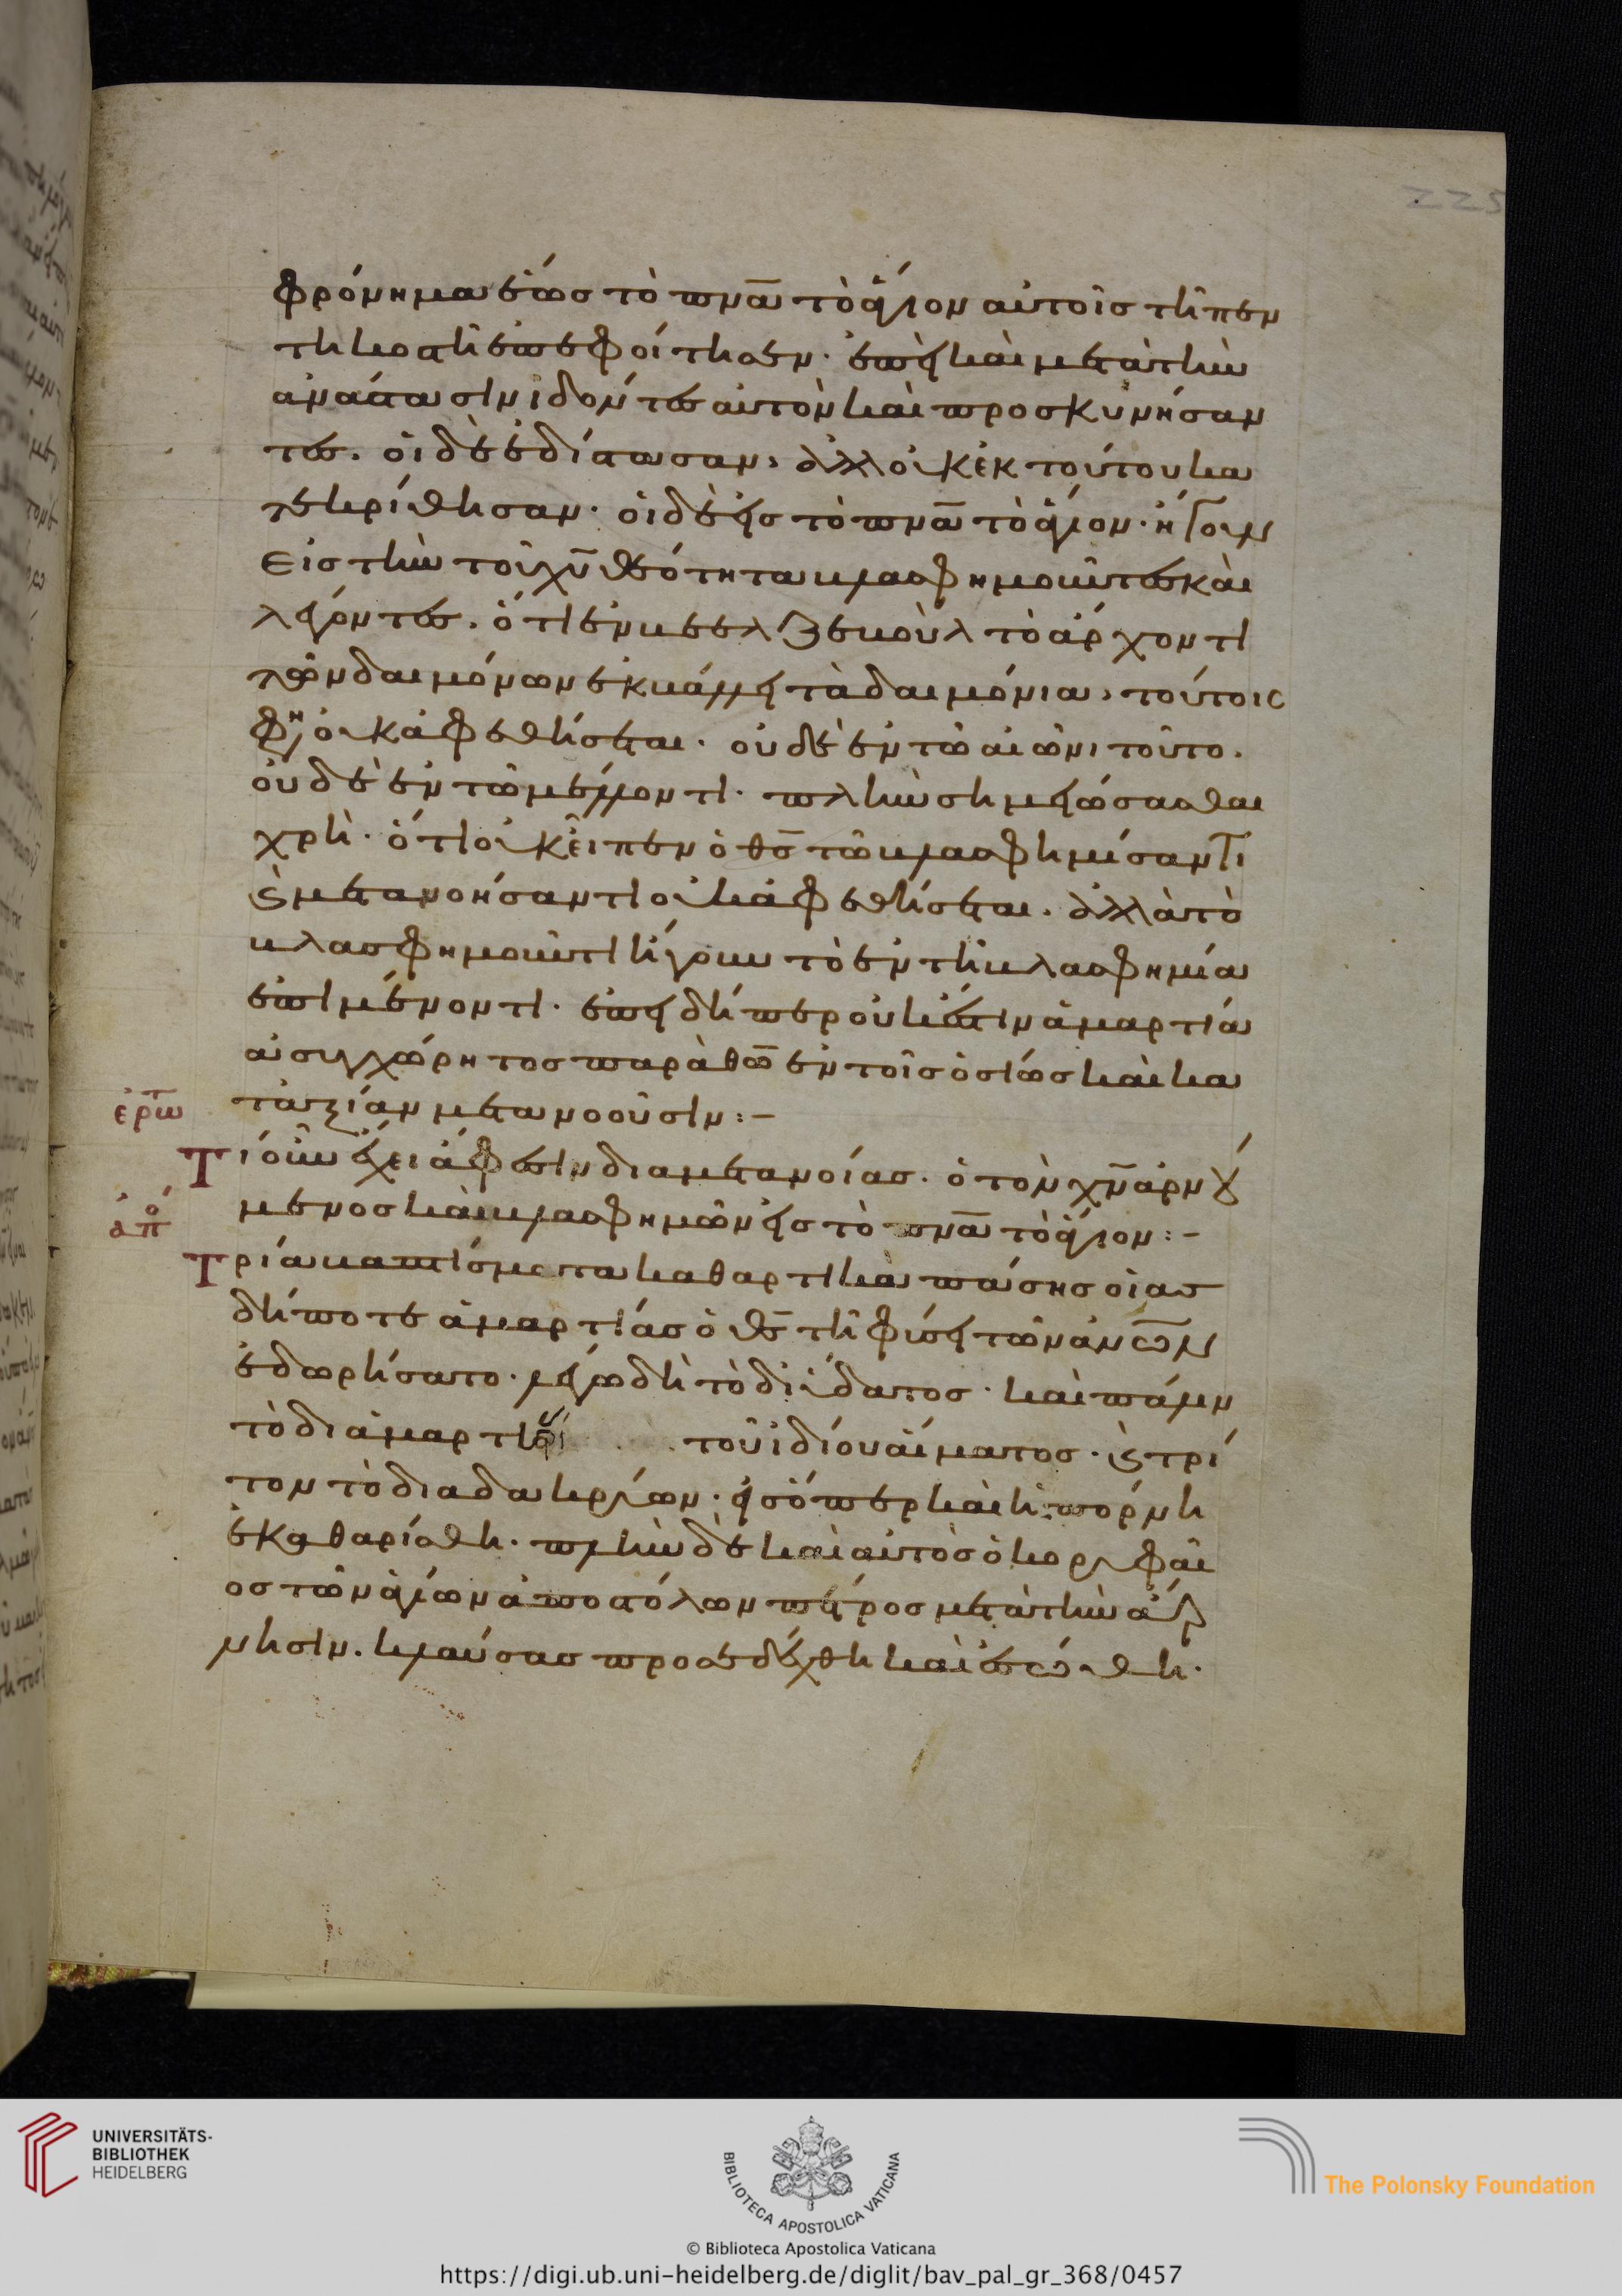 225
φρόνημα ἕως τὸ πνᾶ τὸ ἅγιον αὐτοῖς τῆ πεν
τηκοστῆ ἐπεφοίτησεν· ἐπεὶ καὶ μετὰ τὴν
ἀνάστασιν ἰδόντες αὐτὸν καὶ προσκυνήσαν
τες. οἱ δὲ ἐδίστασαν, ἀλλ οὐκ ἐκ τούτου κα
τεκρίθησαν· οἱ δὲ εἰς τὸ πνᾶ τὸ ἅγιον· ἤγουν
εἰς τὴν τοῦ χυ θεότητα βλασφημοῦντες καὶ
λέγοντες. ὅτι ἐν βεελζεβοὺλ τὸ ἄρχοντι
τῶν δαιμόνων ἐκβάλλει τὰ δαιμόνια, τούτοις
φη οὐκ ἀφεθήσεται· οὐδὲ ἐν τῶ αἰῶνι τοῦτο.
οὐδὲ ἐν τῶ μέλλοντι· πλὴν σημειώσασθαι
χρὴ· ὅτι οὐκ εἶπεν ὁ θς τῶ βλασφημίσαντι
ϗ μετανοήσαντι οὐκ ἀφεθήσεται. ἀλλὰ τὸ
βλασφημοῦντι ἤγουν τὸ ἐν τῆ βλασφημία
ἐπιμένοντι· ἐπειδήπερ οὐκ ἔστιν ἁμαρτία
ἀσυγχώρητος παρὰ θω ἐν τοῖς ὁσίως καὶ κα
ἐρωτ
ταξίαν μετανοοῦσιν:–
Τί οὖν ἔχει ἄφεσιν δια μετανοίας. ὁ τὸν χν ἀρνού
ἀπο
μενος καὶ βλασφημῶν εἰς τὸ πνᾶ τὸ ἅγιον:–
Τρία βαπτίσματα καθαρτικὰ πάσης οἵασ
δήποτε ἁμαρτίας ὁ θς τῆ φύσει τῶν ἀνων
ἐδωρήσατο· λέγω δὴ τὸ δι ὕδατος· καὶ πάλιν
τὸ διὰ μαρτυ τοῦ ἰδίου αἵματος· ϗ τρί
τον τὸ δια δακρύων· εἰς ὅπερ καὶ ἡ πόρνη
ἐκαθαρίσθη. πλὴν δὲ καὶ αὐτὸς ὁ κορυφαῖ
ος τῶν ἁγίων ἀποστόλων πέτρος μετὰ τὴν ἄρ
νησιν. κλαύσας προσεδέχθη καὶ ἐσώθη.
UNIVERSITÄTS-
BIBLIOTHEK
HEIDELBERG
BIBLIOTECA APOSTOLICA VATICANA
The Polonsky Foundation
© Biblioteca Apostolica Vaticana
https://digi.ub.uni-heidelberg.de/diglit/bav_pal_gr_368/0457